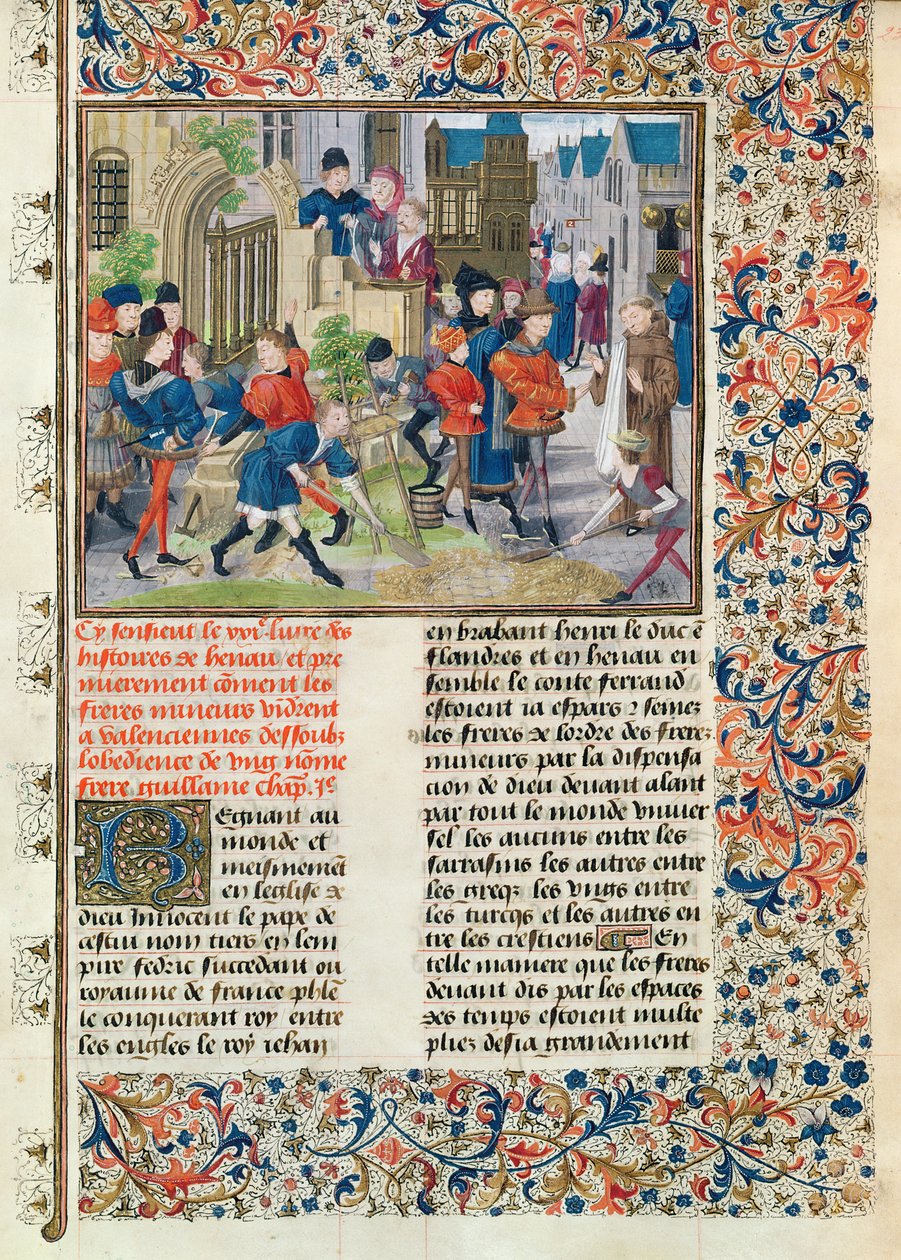 Cy sensient le xxie. liure des
histoires de henau / et pre
mierement cōment les
freres mineurs vidrent
a valenciennes dessoubz
lobedience de vng nōme
frere guillame Chap. Ie
REgnant au
monde et
meismemēt
en leglise de
dieu Innocent le pape de
cestui nom tiers / en lem
pire fedric succedant ou
royaume de france phl̄e
le conquerant roy / entre
les engles le roy iehan
en brabant henri le duc ē
flandres et en henau en
semble le conte ferrand
estoient ia espars 2 semez
les freres de lordre des freres
mineurs par la dispensa
cion de dieu deuant alant
par tout le monde vniuer
sel les aucuns entre les
sarrasins les autres entre
les greqz les vngs entre
les turcqs et les autres en
tre les crestiens En
telle maniere que les freres
deuant dis par les espaces
des temps estoient multe
pliez desia grandement